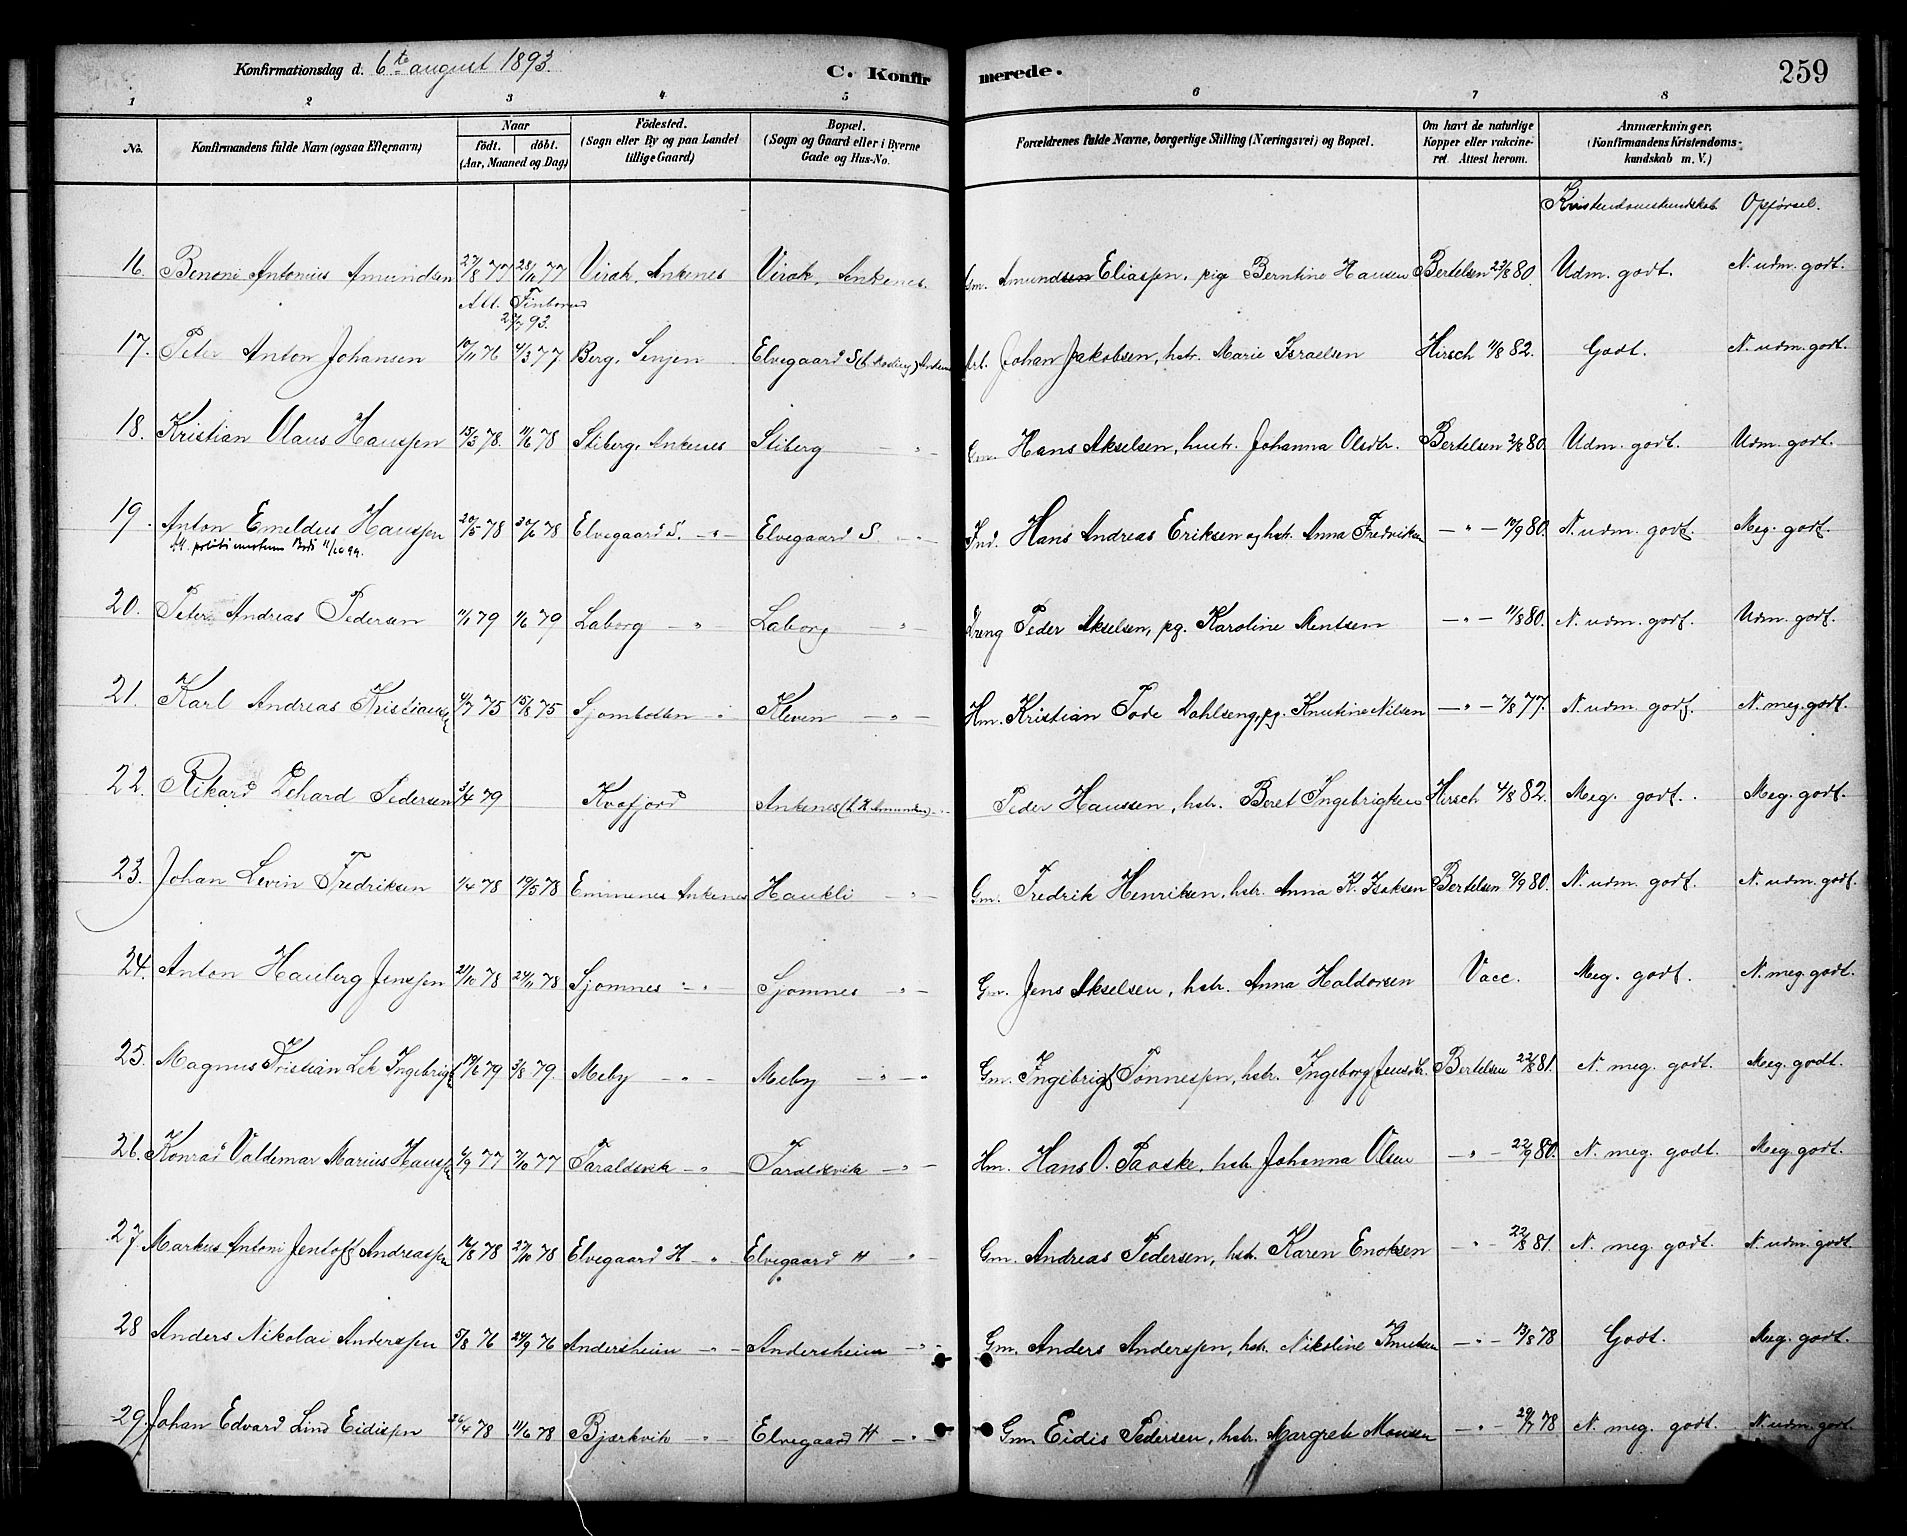 Konfirmationsdag d. 6te august 1893. C. Konfirmerede. 259
1 2 3 4 5 6 7 8
No. Konfirmandens fulde Navn (ogsaa Efternavn) Naar født. døbt. (Aar, Maaned og Dag) Födested. (Sogn eller By og paa Landet tillige Gaard) Bopæl. (Sogn og Gaard eller i Byerne Gade og Hus-No. Forældrenes fulde Navne, borgerlige Stilling (Næringsvei) og Bopæl. Om havt de naturlige Kopper eller vakcineret. Attest herom. Anmærkninger. (Konfirmandens Kristendomskundskab m. V.)
Kristendomskundskab Opførsel.
16. Benoni Antonius Amundsen 27/8 77 28/11 77 Virak, Ankenes Virak, Ankenes. Gm. Amundsen Eliassen, pig Berntine Hansen Bertelsen 23/8 80. Udm. godt. N. udm. godt.
Att. 93.
17. Peter Anton Johansen 10/11 76 4/3 77 Berg, Senjen Elvegaard S Arb. Johan Jakobsen, hstr. Marie Israelsen Hirsch 11/8 82. Godt. N. udm. godt.
18. Kristian Olaus Hanssen 15/3 78. 11/6 78 Stiberg, Ankenes Stiberg — " — Gm. Hans Akselsen, hustr. Johanna Olsdtr. Bertelsen 2/8 80. Udm. godt. Udm. godt.
19. Anton Emeldus Hanssen 20/5 78 30/6 78 Elvegaard S. — " — Elvegaard S — " — Ind. Hans Andreas Eriksen og hstr. Anna Fredriksen — " — 17/9 80. N. udm. godt. Meg. godt.
11/10 99.
20. Peter Andreas Pedersen 11/1 79 1/6 79 Laborg — " — Laborg " Dreng Peder Akselsen, pg. Karoline Mentsen — " — 11/8 80. N. udm. godt. Udm. godt.
21. Karl Andreas Kristiansen 4/7 75 15/8 75 Sjombotten " Kleven — " — Hm. Kristian Tode Dahlseng, pg. Knutine Nilsen — " — 7/8 77. N. udm. godt. N. meg. godt.
22. Rikard Edhard Pedersen 3/4 79 Kvæfjord Ankenes Peder Hanssen, hstr. Beret Ingebrigtsen Hirsch 4/8 82. Meg. godt. Meg. godt.
23. Johan Levin Fredriksen 1/4 78 19/5 78 Emmenes Ankenes Haukli — " — Gm. Fredrik Henriksen, hstr. Anna K. Isaksen Bertelsen 9/9 80. N. udm. godt. N. udm. godt.
24. Anton Hauberg Jenssen 21/10 78 24/11 78 Sjomnes " — " Sjomnes — " — Gm. Jens Akselsen, hstr. Anna Haldorsen Vacc. Meg. godt. N. meg. godt.
25. Magnus Kristian Lek Ingebrigts 19/6 79 3/8 79. Meby — " — Meby — " — " Gm. Ingebrigt Tønnessen, hstr. Ingeborg Jensdtr. Bertelsen 22/8 81. N. meg. godt. Meg. godt.
26. Konrad Valdemar Marius Hanssen 4/9 77 7/10 77 Taraldsvik — " — Taraldsvik — " — Hm. Hans O. Paaske, hstr. Johanna Olsen — " — 22/9 80. N. meg. godt. Meg. godt.
27. Markus Antoni Jentoft Andreassen 16/8 78 27/10 78 Elvegaard H — " — Elvegaard H — " — Gm. Andreas Pedersen, hstr. Karen Enoksen — " — 22/8 81. N. meg. godt. N. udm. godt.
28 Anders Nikolai Anderssen 5/8 76 24/9 76 Andersheim — " — Andersheim — " — Gm. Anders Anderssen, hstr. Nikoline Knutsen — " — 13/8 78 Godt. Meg. godt.
29. Johan Edvard Lind Eidissen 26/4 78 11/6 78 Bjerkvik " — Elvegaard H — " — Gm. Eidis Pedersen, hstr. Margrete Monsen — " — 29/7 78 N. meg. godt. N. udm. godt